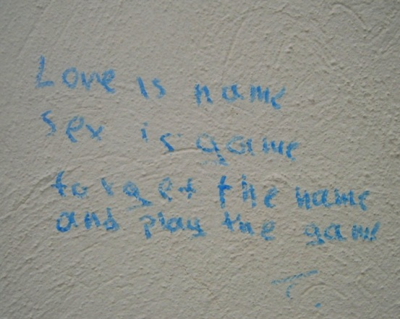 Love is name
Sex is game
forget the name
and play the game
T.